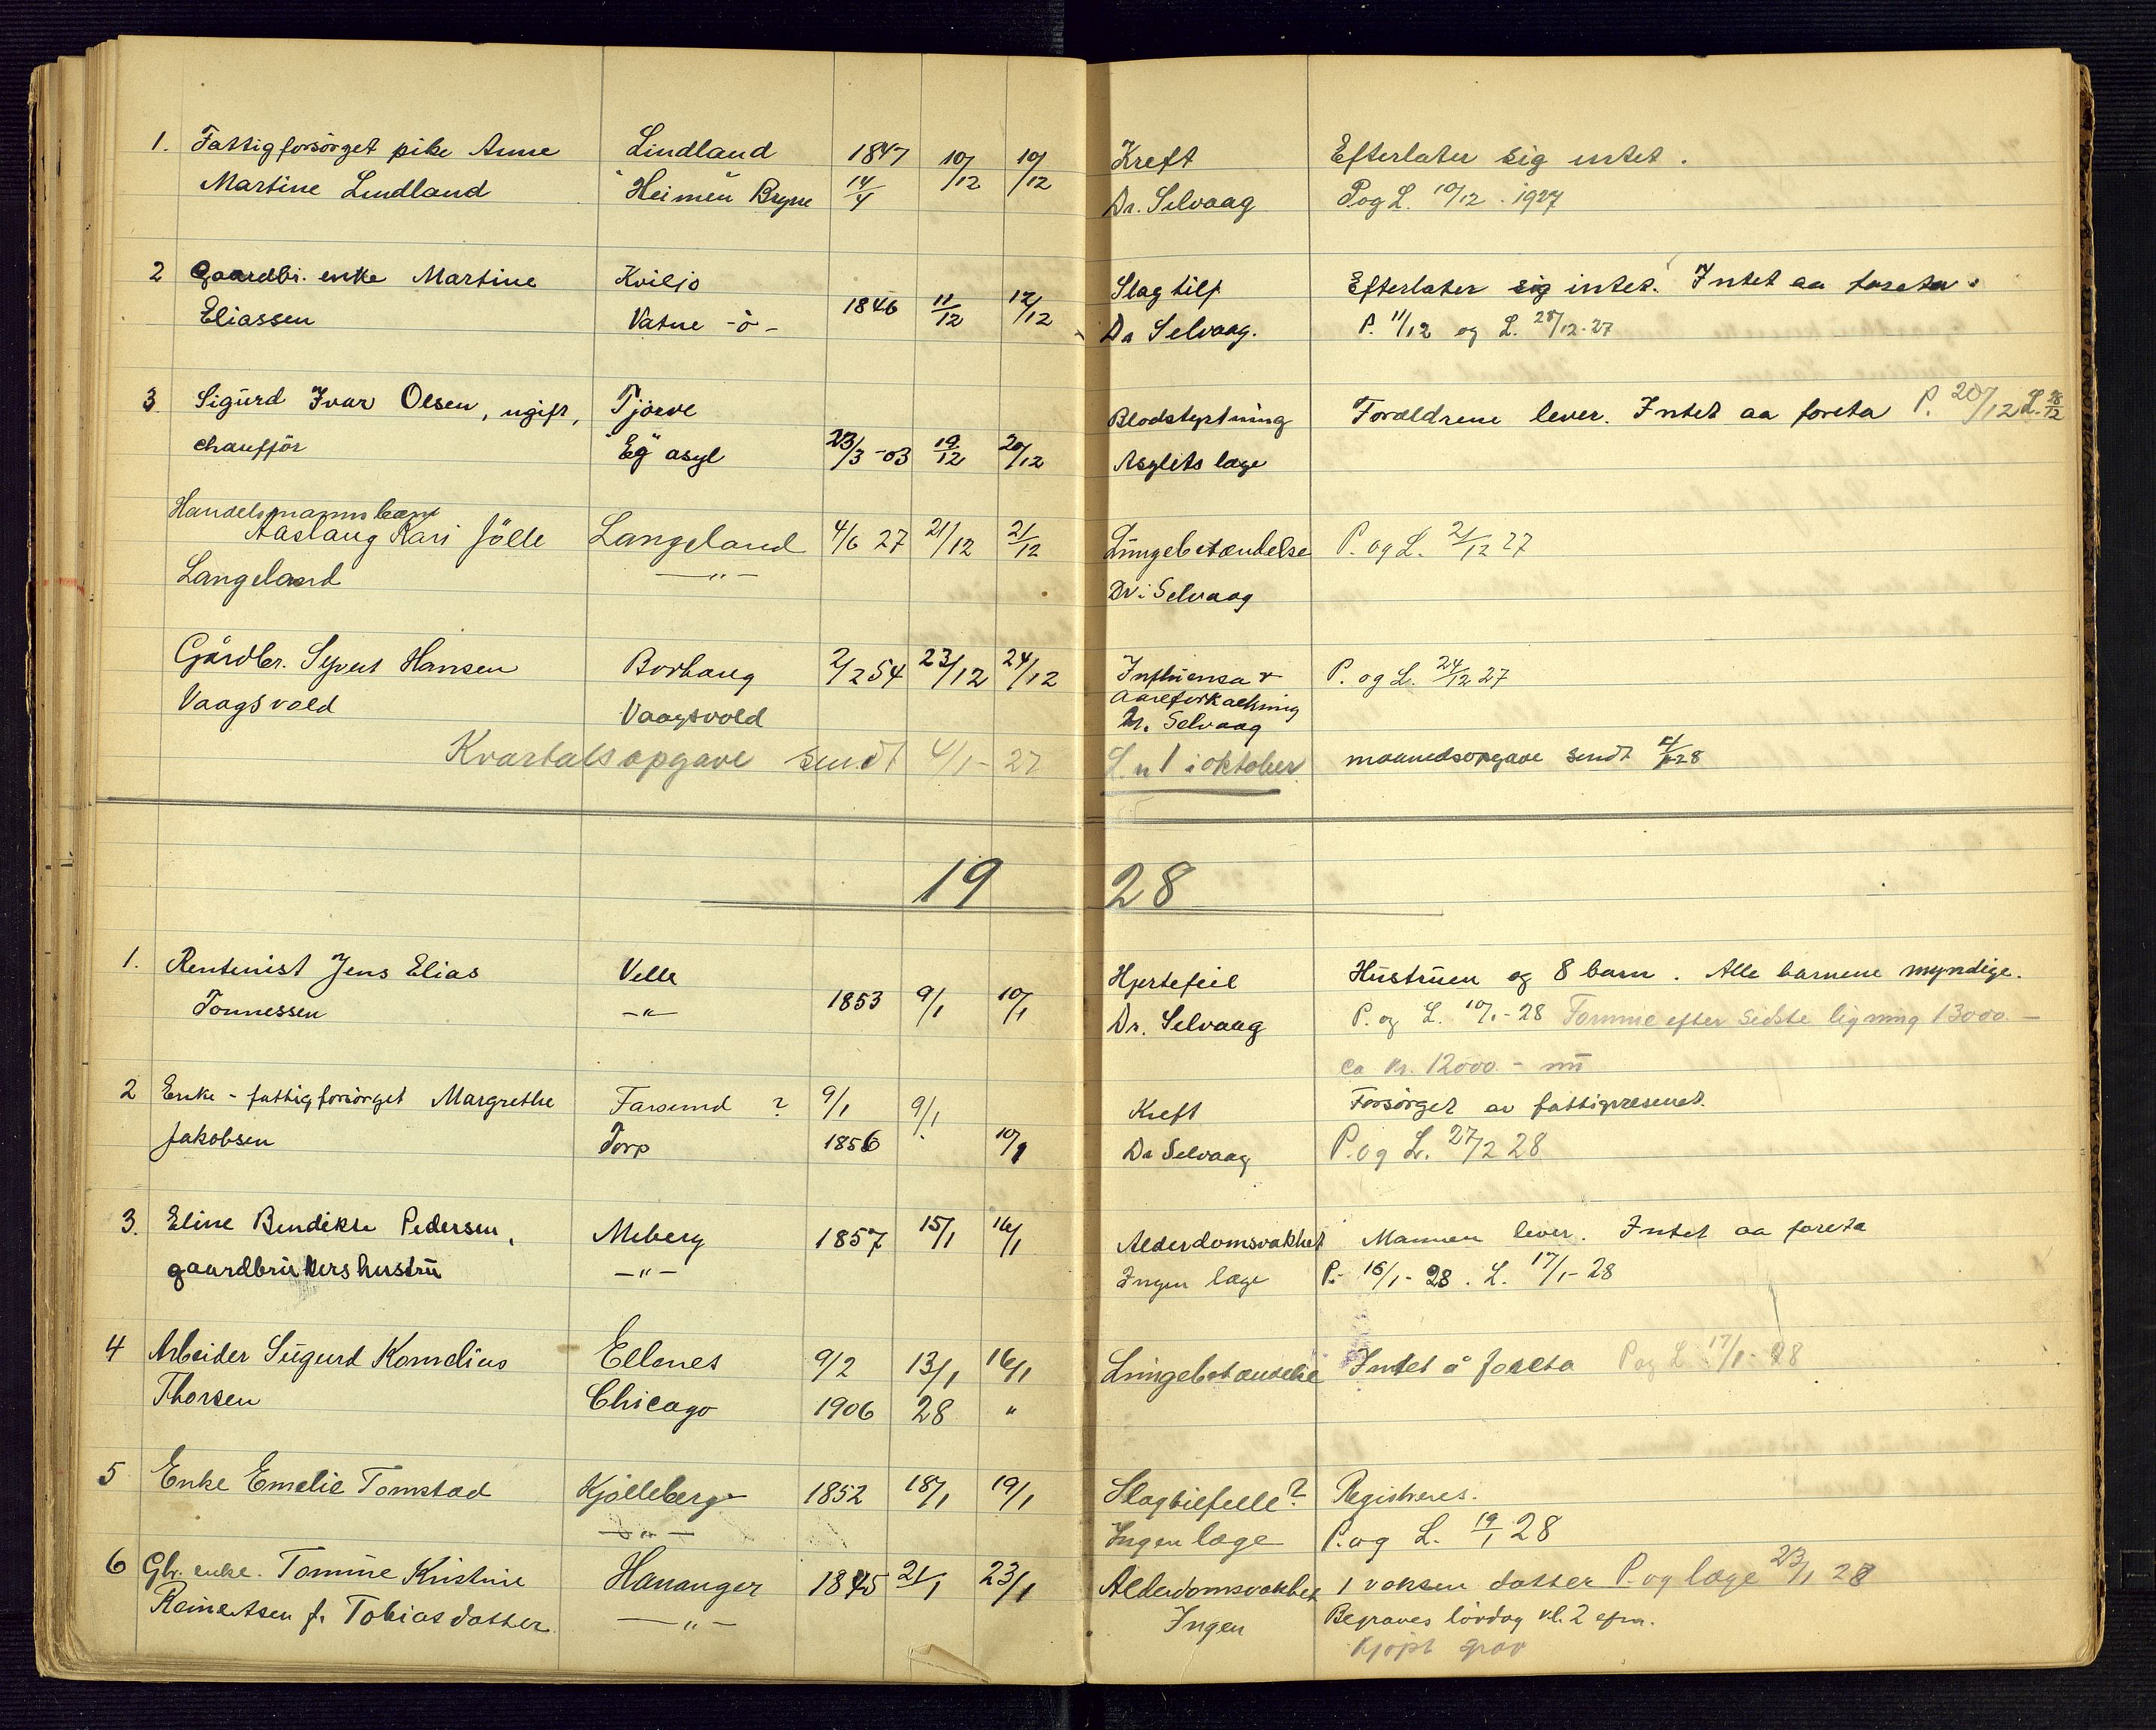 1. Fattigforsörget pike Anne Lindland 1847 10/12 10/12 Kreft Efterlater sig intet.
Martine Lindland "Heimen" Bryne 14/4 Dr. Selvaag P og L. 10/12. 1927
2 Gaardbr. enke Martine Kviljo Slagtilf Efterlater sig intet. Intet aa foreta.
Eliassen Vatne -ö- 1846 11/12 12/12 Dr Selvaag. P. 11/12 og L. 28/12-27
3 Sigurd Ivar Olsen, ugift, Tjörve Blodstyrtning Forældrene lever. Intet aa foreta P. 20/12 L. 28/12
chaufför "Eg" asyl 23/3-03 19/12 20/12 Asylets læge
Handelsmanns barn
Aaslaug Kari Jölle Langeland 4/6 27 21/12 21/12 Lungebetændelse P. og L. 21/12 27
Langeland —"— Dr: Selvaag
Gårdbr. Syvert Hansen Borhaug 2/2 54 23/12 24/12 Influensa & P. og L. 24/12 27
Vaagsvold Vaagsvold aareforkalkning
Dr. Selvaag
Kvartalsopgave sendt 4/1-27 oktober maanedsopgave sendt 4/1-28
19 28
1. Rentenist Jens Elias Velle Hjertefeil Hustruen og 8 barn. Alle barnene myndige.
Tönnessen —"— 1853 9/1 10/1 Dr. Selvaag P. og L. 10/1-28 Formue efter sidste ligning 13000.—
ca kr. 12000.- nu
2 Enke - fattigforsörget Margrethe Farsund ? 9/1 9/1 Kreft Forsörget av fattigvesenet.
Jakobsen Torp 1856 10/1 Dr Selvaag P. og L. 27/2 28
3. Eline Bendikte Pedersen, Meberg 1857 15/1 16/1 Alderdomsvakhet Mannen lever. Intet aa foreta
gaardbrukers hustru —"— Ingen læge P. 16/1-28. L. 17/1-28
4 Arbeider Sigurd Kornelius Ellenes 9/2 13/1 16/1 Lungebetændelse Intet å foreta P og L 17/1-28
Thorsen Chicago 1906 28 "
5 Enke Emelie Tomstad Kjölleberg 1852 18/1 19/1 Slagtilfelle? Registreres.
—"— Ingen læge P. og L. 19/1 28
6 Gbr. enke. Tomine Kristine Hananger 1845 21/1 23/1 Alderdomsvakhet 1 voksen datter P. og læge 23/1 28
Reinertsen f. Tobiasdatter —"— Ingen Begraves lördag kl. 2 efm.
kjöpt grav